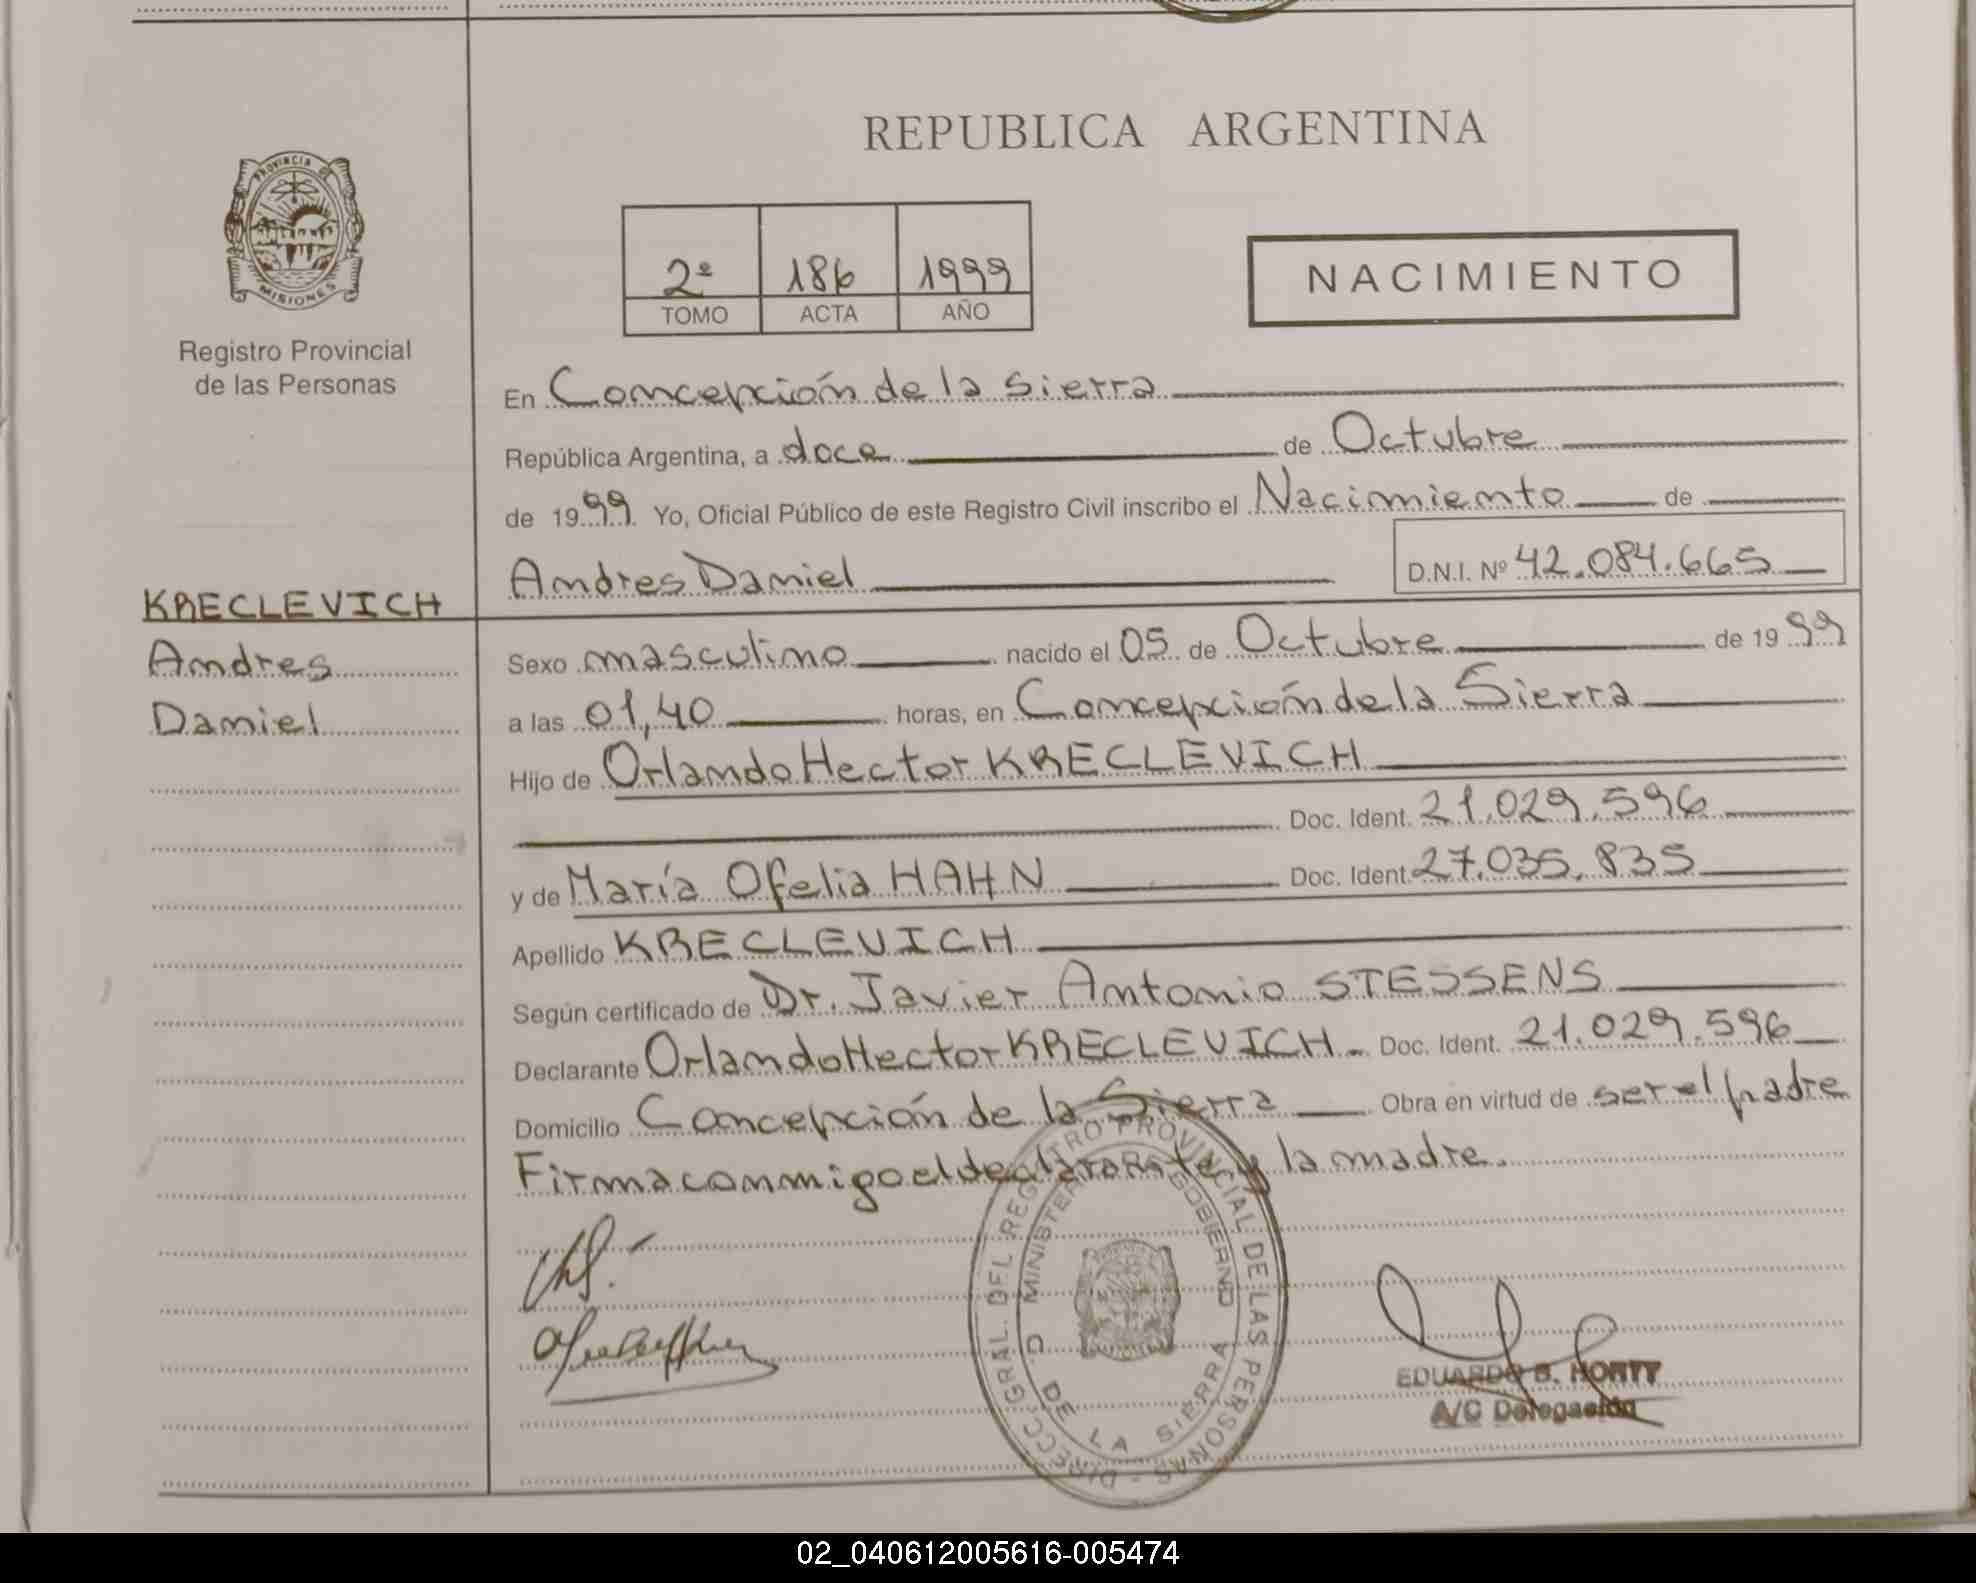 PROVINCIA DE
MISIONES
Registro Provincial
de las Personas
KRECLEVICH
Andres
Daniel
REPUBLICA ARGENTINA
2º 186 1999
TOMO ACTA AÑO
NACIMIENTO
En Concepción de la Sierra
República Argentina, a doce de Octubre
de 1999 Yo, Oficial Público de este Registro Civil inscribo el Nacimiento de
Andres Daniel D.N.I. Nº 42.084.665
Sexo masculino nacido el 05 de Octubre de 1999
a las 01,40 horas, en Concepción de la Sierra
Hijo de Orlando Hector KRECLEVICH
Doc. Ident. 21.029.596
y de María Ofelia HAHN Doc. Ident. 27.035.835
Apellido KRECLEVICH
Según certificado de Dr. Javier Antonio STESSENS
Declarante Orlando Hector KRECLEVICH. Doc. Ident. 21.029.596
Domicilio Concepción de la Sierra Obra en virtud de ser el padre
Firma conmigo el declarante y la madre.
DIRECC. GRAL. DEL REGISTRO PROVINCIAL DE LAS PERSONAS -
MINISTERIO DE GOBIERNO
C. DE LA SIERRA
EDUARDO S. HORTT
A/C Delegación
02_040612005616-005474